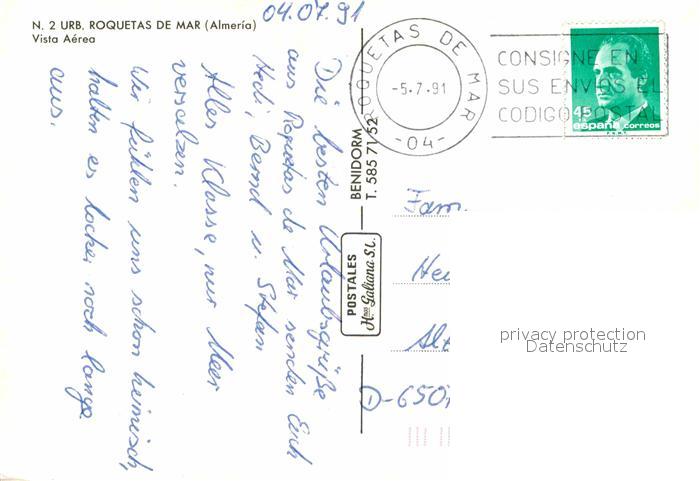 N. 2 URB. ROQUETAS DE MAR (Almería)
Vista Aérea
04.07.91
Die besten Urlaubsgrüße
aus Roquetas de Mar senden Euch
Hedi, Bernd u. Stefan
Alles Klasse, nur Meer
versalzen.
Wir fühlen uns schon heimisch,
halten es locker noch lange
aus.
BENIDORM
T. 585 71 52
POSTALES
Hnos Galiana S.L.
ROQUETAS DE MAR
-5.7.91
-04-
CONSIGNE EN
SUS ENVIOS EL
CODIGO POSTAL
45
españa correos
Fam.
D-650
privacy protection
Datenschutz